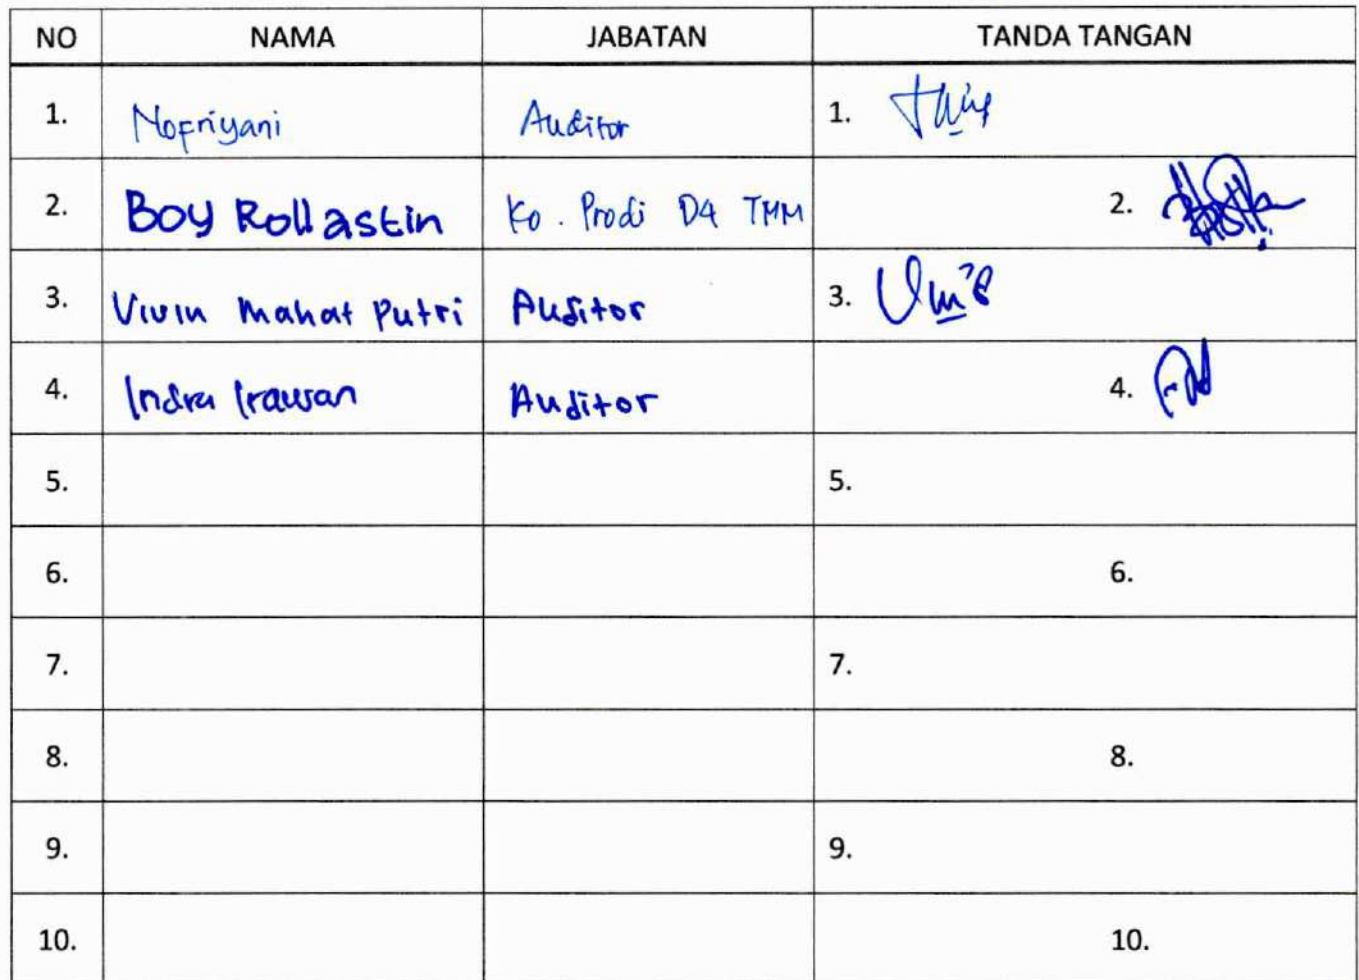 NO NAMA JABATAN TANDA TANGAN
1. Nopriyani Auditor 1.
2. Boy Rollastin Ko. Prodi D4 TMM 2.
3. Vivin Mahat Putri Auditor 3.
4. Indra Irawan Auditor 4.
5. 5.
6. 6.
7. 7.
8. 8.
9. 9.
10. 10.